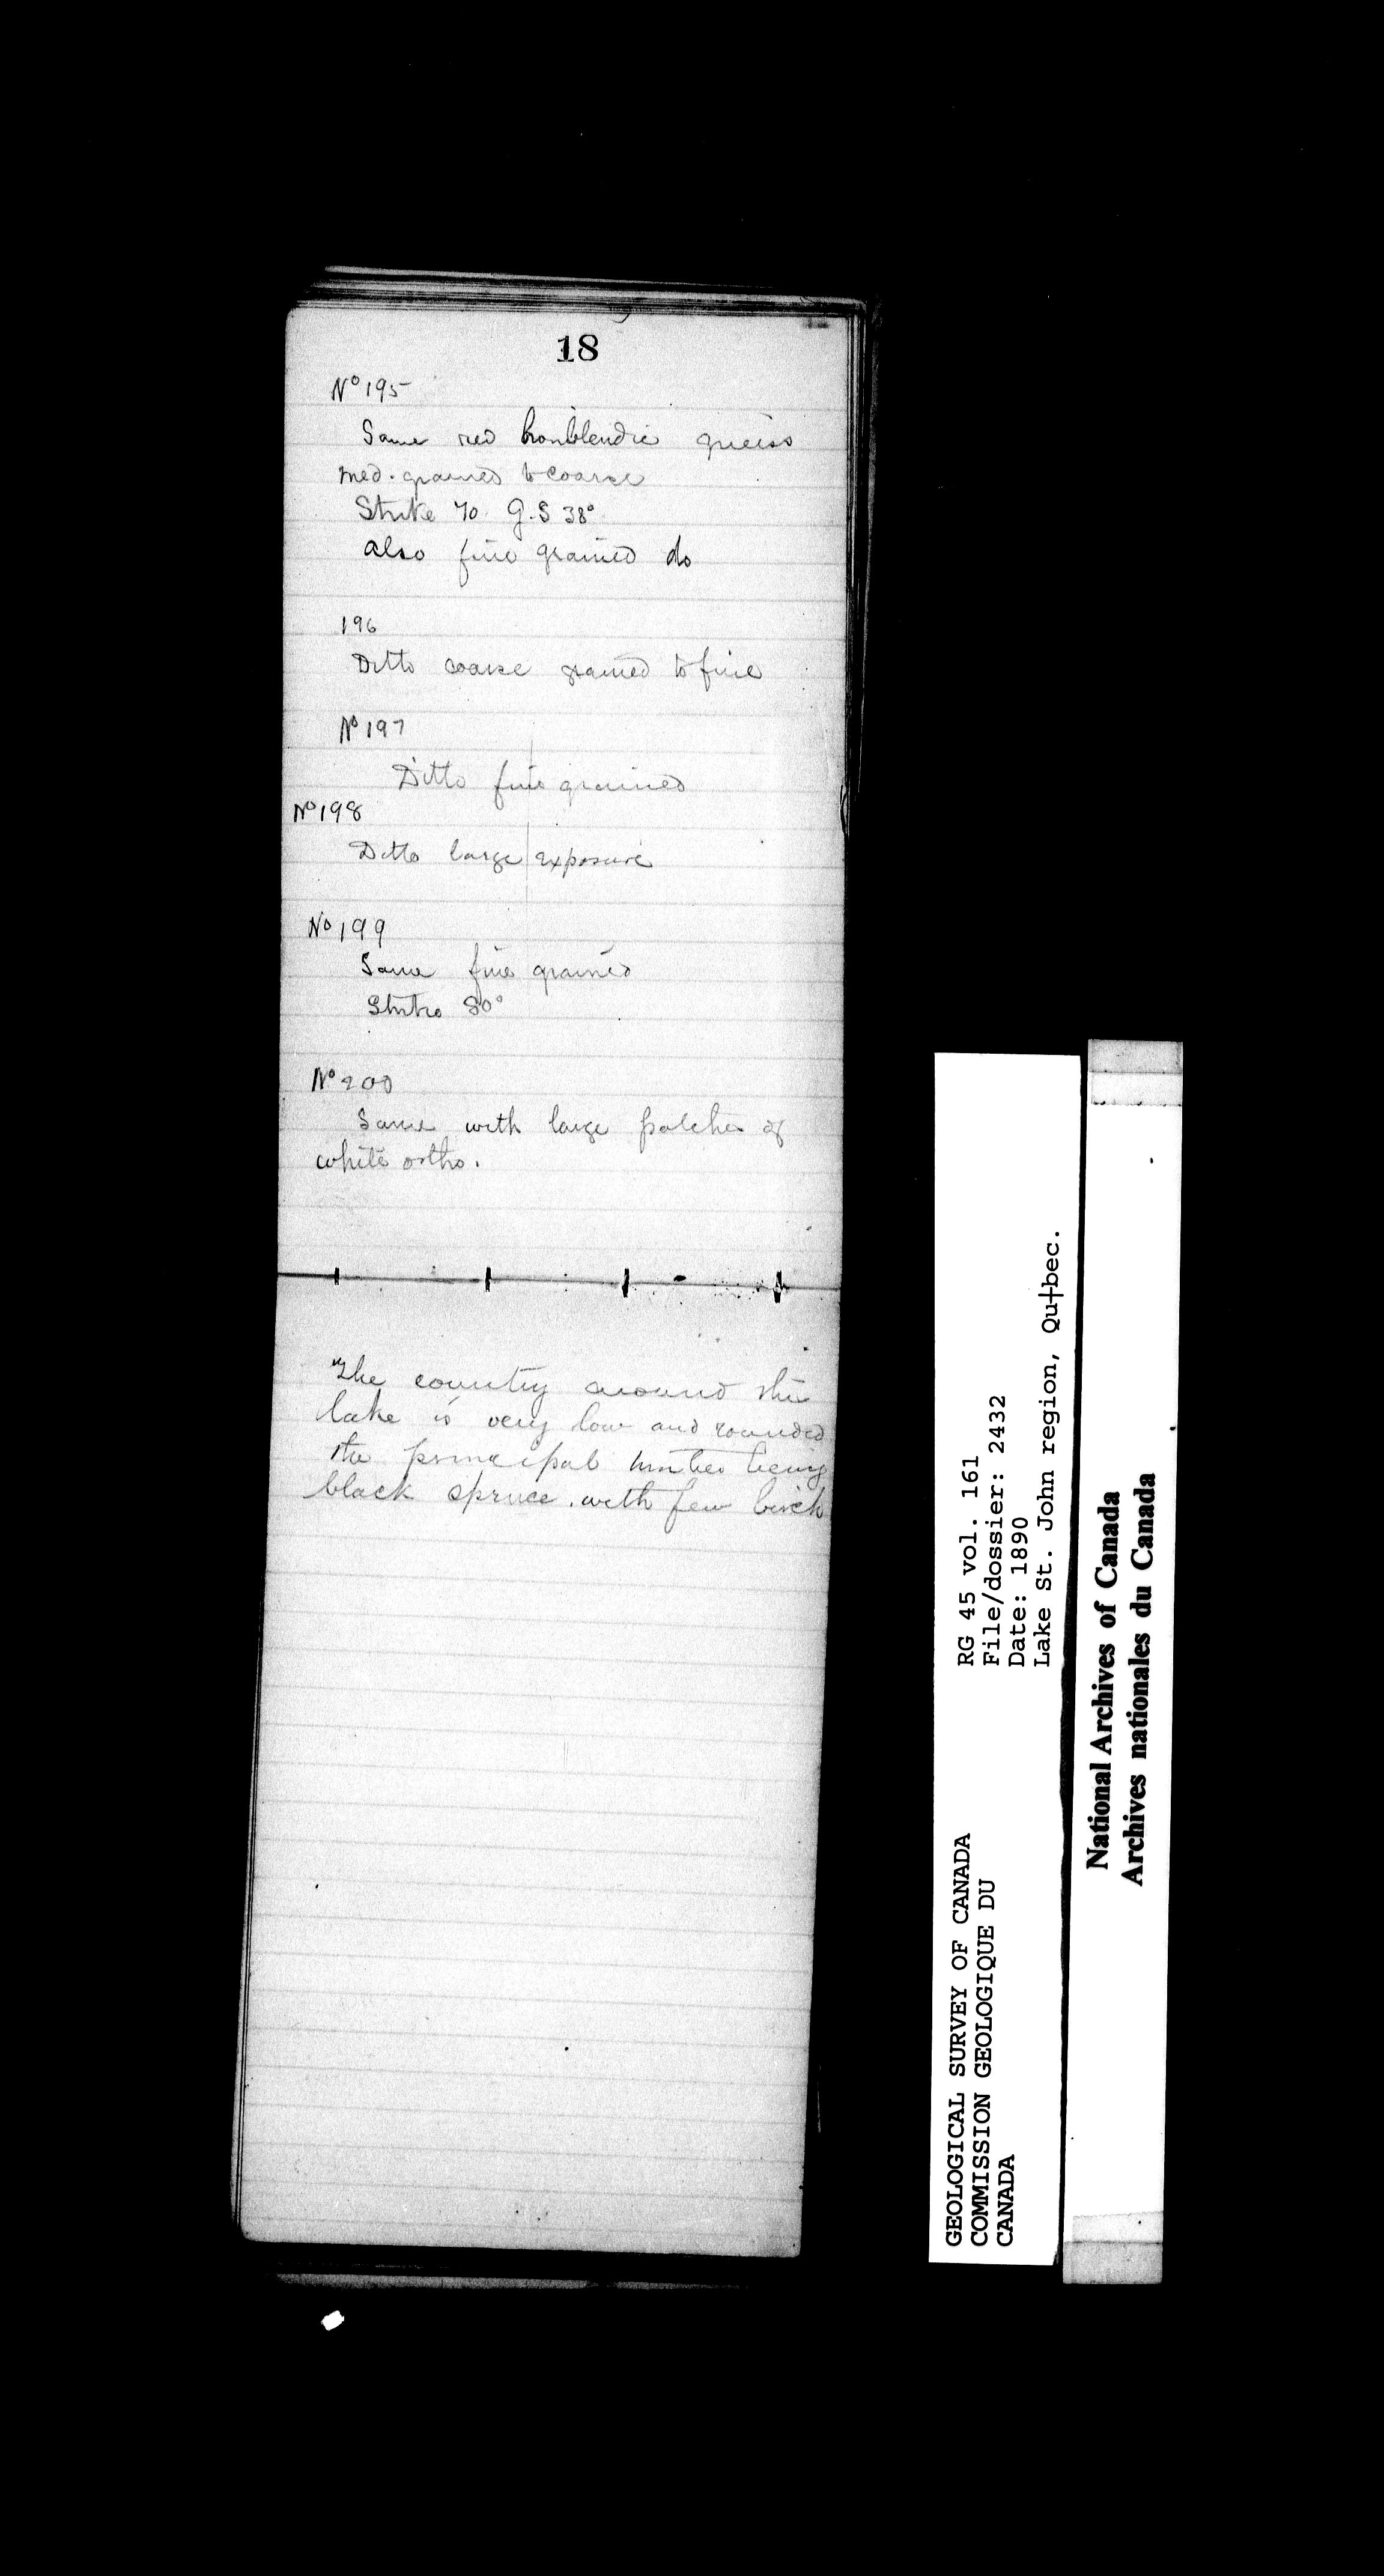 18
No 195
Same red hornblendic gneiss
med. grained to coarse
Strike 70 G.S 38°
also fine grained do
196
Ditto coarse grained to fine
No 197
Ditto fine grained
No 198
Ditto large exposure
No 199
Same fine grained
Strike 80°
No 200
Same with large patches of
white ortho.
The country around this
lake is very low and rounded
the principal timber being
black spruce. with few birch
RG 45 vol. 161
File/dossier: 2432
Date: 1890
Lake St. John region, Qu†bec.
GEOLOGICAL SURVEY OF CANADA
COMMISSION GEOLOGIQUE DU
CANADA
National Archives of Canada
Archives nationales du Canada